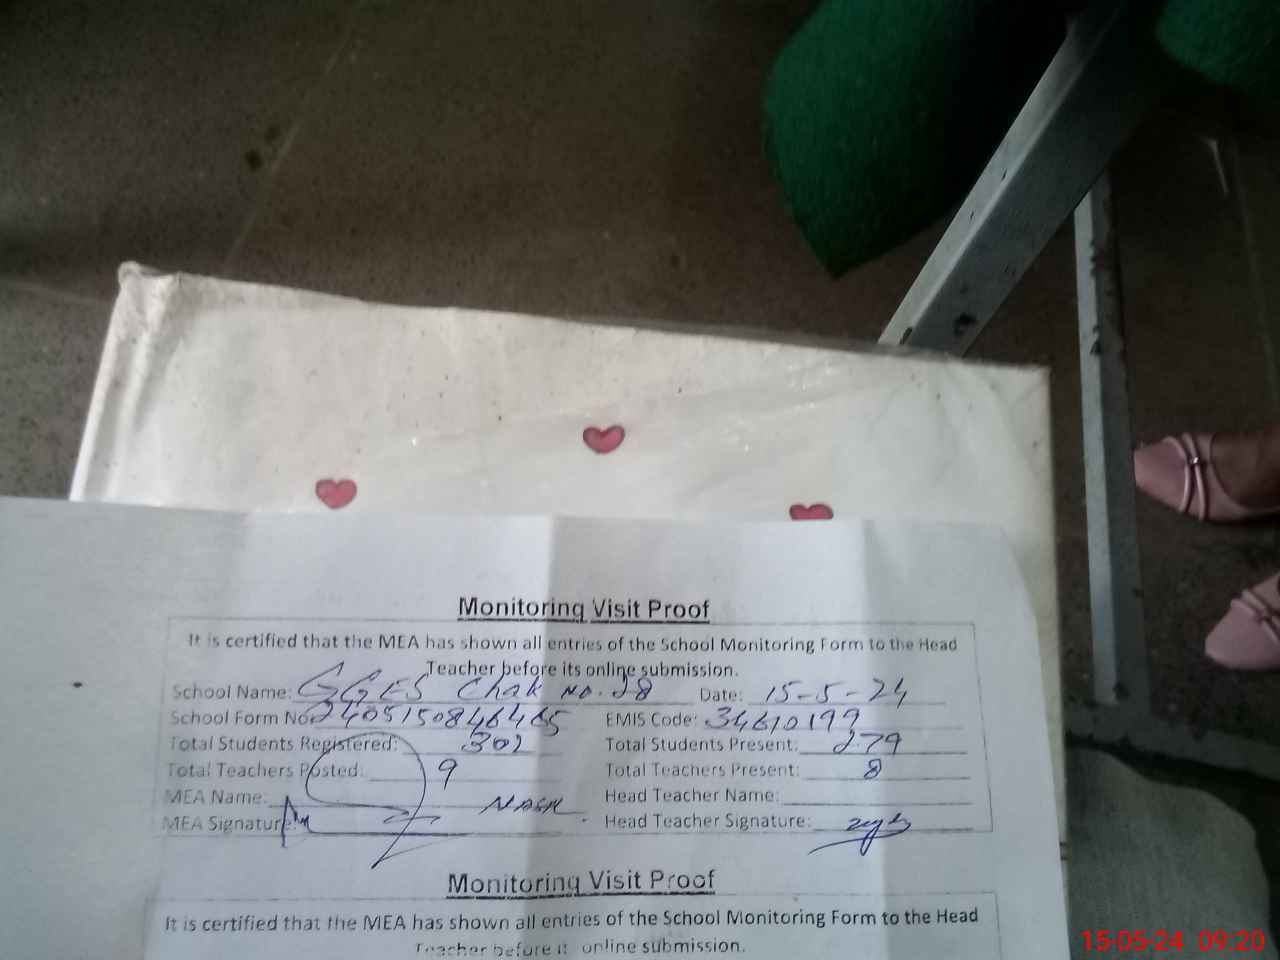 Monitoring Visit Proof
It is certified that the MEA has shown all entries of the School Monitoring Form to the Head
Teacher before its online submission.
School Name: GGES Chak No. 28 Date: 15-5-24
School Form No: 2405150846465 EMIS Code: 34610199
Total Students Registered: 302 Total Students Present: 279
Total Teachers Posted: 9 Total Teachers Present: 8
MEA Name: Head Teacher Name:
MEA Signature: Head Teacher Signature:
Monitoring Visit Proof
It is certified that the MEA has shown all entries of the School Monitoring Form to the Head
Teacher before it online submission.
15-05-24 09:20